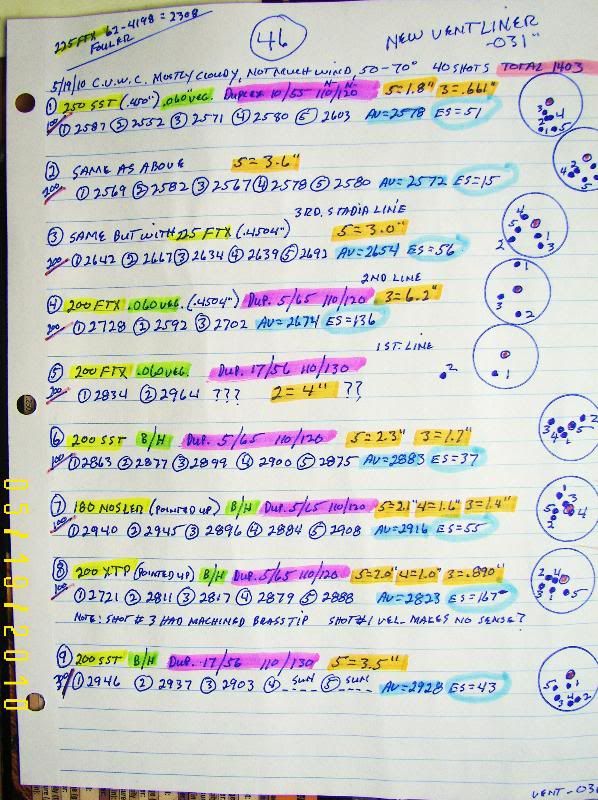 225 FTX 62-4198 = 2308
FOULER
46
NEW VENT LINER
-031"
5/19/10 C.V.W.C. MOSTLY CLOUDY, NOT MUCH WIND, 50-70° 40 SHOTS TOTAL 1403
① 250 SST (.450") .060" VEG. DUPLEX 10/55 110/120 5=1.8" 3=.661"
100 ① 2587 ② 2552 ③ 2571 ④ 2580 ⑤ 2603 AV=2578 ES=51
② SAME AS ABOVE 5=3.6"
200 ① 2569 ② 2582 ③ 2567 ④ 2578 ⑤ 2580 AV=2572 ES=15
3RD. STADIA LINE
③ SAME BUT WITH 225 FTX (.4504") 5=3.0"
200 ① 2642 ② 2667 ③ 2634 ④ 2639 ⑤ 2692 AV=2654 ES=56
2ND LINE
④ 200 FTX .060 VEG. (.4504") DUP. 5/65 110/120 3=6.2"
200 ① 2728 ② 2592 ③ 2702 AV=2674 ES=136
1ST. LINE
⑤ 200 FTX .060 VEG. DUP. 17/56 110/130
200 ① 2834 ② 2964 ??? 2=4" ??
⑥ 200 SST B/H DUP. 5/65 110/120 5=2.3" 3=1.7"
100 ① 2863 ② 2877 ③ 2899 ④ 2900 ⑤ 2875 AV=2883 ES=37
⑦ 180 NOSLER (POINTED UP) B/H DUP. 5/65 110/120 5=2.1" 4=1.6" 3=1.4"
100 ① 2940 ② 2945 ③ 2896 ④ 2884 ⑤ 2908 AV=2916 ES=55
⑧ 200 XTP (POINTED UP) B/H DUP. 5/65 110/120 5=2.0" 4=1.0" 3=.890"
100 ① 2721 ② 2811 ③ 2817 ④ 2879 ⑤ 2888 AV=2823 ES=167
NOTE: SHOT #3 HAD MACHINED BRASS TIP SHOT #1 VEL. MAKES NO SENSE?
⑨ 200 SST B/H DUP. 17/56 110/130 5=3.5"
① 2946 ② 2937 ③ 2903 ④ SUN ⑤ SUN AV=2928 ES=43
VENT-031
05/19/2010